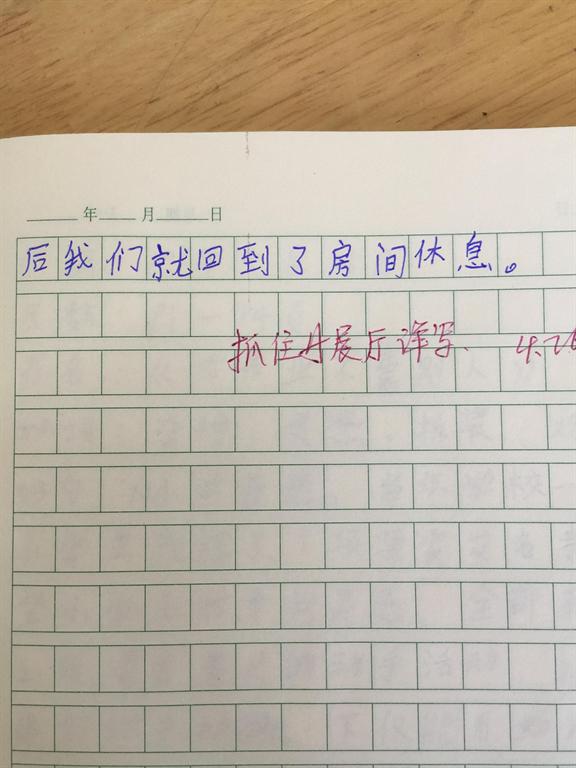 年 月 日
后我们就回到了房间休息。
抓住A展厅详写. 4.26